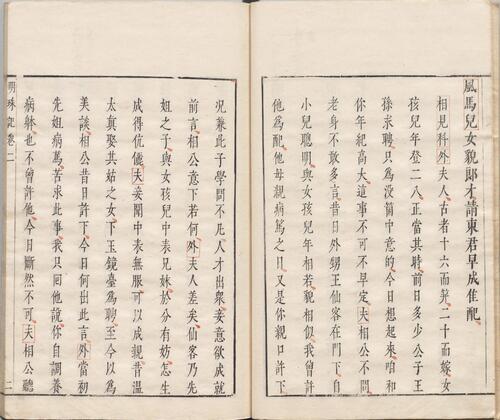 風馬兒女貌郎才請東君早成佳配
相見科外夫人古者十六而笄二十而嫁女
孩兒年登二八正當其時前日多少公子王
孫求聘只為沒箇中意的今日想起來咱和
你年紀高大這事不可不早定夫相公不問
老身不敢多言昔日外甥王仙客在門下自
小兒聰明與女孩兒年相若貌相似我曾許
他為配他母親病篤之日又是你親口許下
況兼此子學問不凡人才出衆妾意欲成就
前言相公意下若何外夫人差矣仙客乃先
姐之子與女孩兒中表兄妹於分有妨怎生
成得伉儷夫妾聞中表無服可以成親昔溫
太真娶其姑之女下玉鏡臺為聘至今以為
美談相公昔日許下今日何出此言外當初
先姐病篤苦求此事我只回他說你自調養
病軀也不曾許他今日斷然不可夫相公聽
明珠記卷二
二